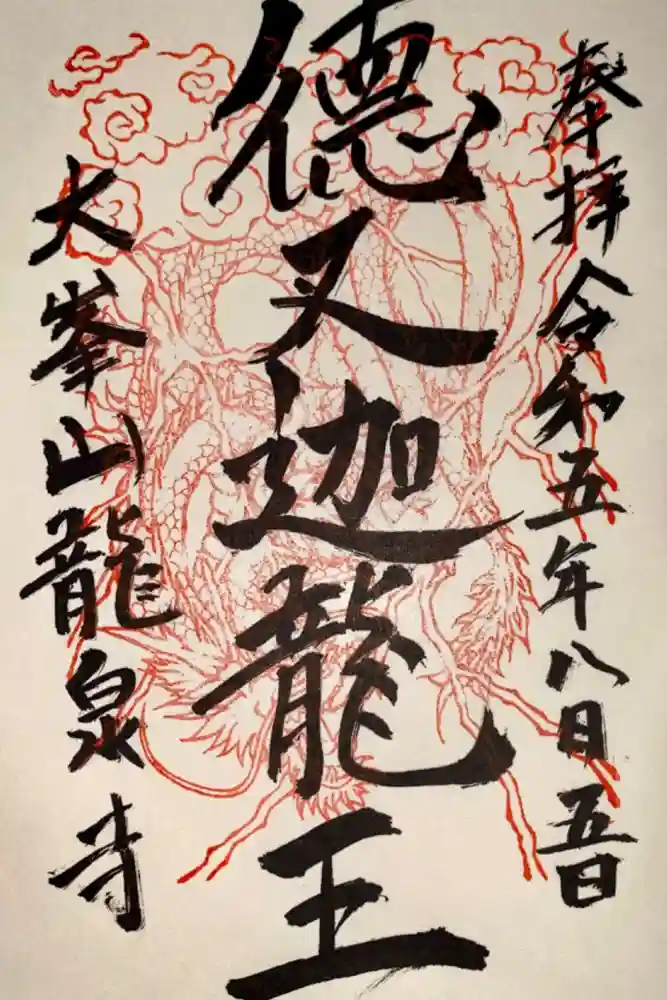 奉拝 令和五年八日五日
德叉迦龍王
大峯山龍泉寺